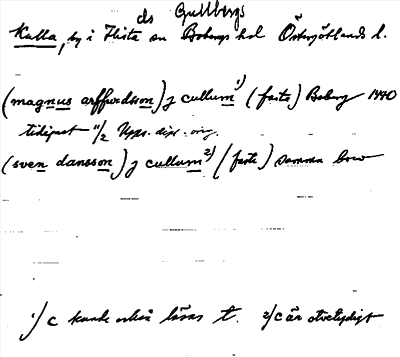 ds Gullbergs
Kulla, by i Flista sn Bobergs hd Östergötlands l.
(magnus arffwidsson) j cullum 1) (faste) Boberg 1440
tidigast 11/2 Upps. dipl. orig.
(sven dansson) j cullum 2) (faste) samma brev
1) c kunde också läsas t. 2) c är otvetydigt